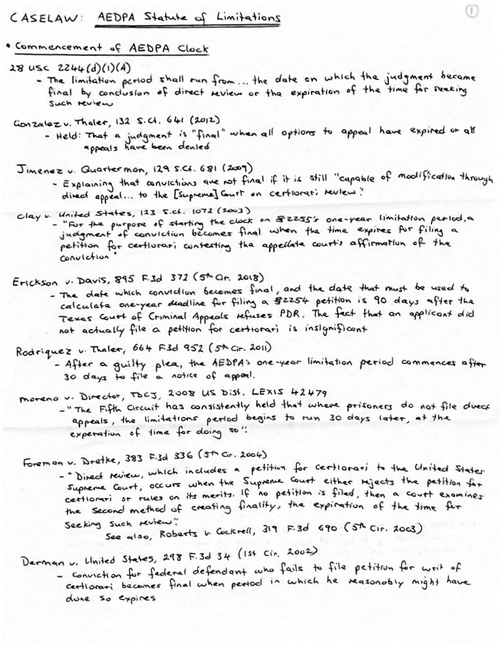 CASELAW: AEDPA Statute of Limitations
1
• Commencement of AEDPA Clock
28 USC 2244(d)(1)(A)
- The limitation period shall run from... the date on which the judgment became
final by conclusion of direct review or the expiration of the time for seeking
such review
Gonzalez v. Thaler, 132 S.Ct. 641 (2012)
- Held: That a judgment is "final" when all options to appeal have expired or all
appeals have been denied
Jimenez v. Quarterman, 129 S.Ct. 681 (2009)
- Explaining that convictions are not final if it is still "capable of modification through
direct appeal... to the [Supreme] Court on certiorari review."
Clay v. United States, 123 S.Ct. 1072 (2003)
- "For the purpose of starting the clock on §2255's one-year limitation period, a
judgment of conviction becomes final when the time expires for filing a
petition for certiorari contesting the appellate court's affirmation of the
conviction"
Erickson v. Davis, 895 F.3d 372 (5th Cir. 2018)
- The date which conviction becomes final, and the date that must be used to
calculate one-year deadline for filing a §2254 petition is 90 days after the
Texas Court of Criminal Appeals refuses PDR. The fact that an applicant did
not actually file a petition for certiorari is insignificant
Rodriguez v. Thaler, 664 F.3d 952 (5th Cir. 2011)
- After a guilty plea, the AEDPA's one-year limitation period commences after
30 days to file a notice of appeal.
Moreno v. Director, TDCJ, 2008 US Dist. LEXIS 42479
- "The Fifth Circuit has consistently held that where prisoners do not file direct
appeals, the limitations period begins to run 30 days later, at the
experation of time for doing so".
Foreman v. Dretke, 383 F.3d 336 (5th Cir. 2004)
- "Direct review, which includes a petition for certiorari to the United States
Supreme Court, occurs when the Supreme Court either rejects the petition for
certiorari or rules on its merits. If no petition is filed, then a court examines
the second method of creating finality, the expiration of the time for
seeking such review."
See also, Roberts v. Cockrell, 319 F.3d 690 (5th Cir. 2003)
Derman v. United States, 298 F.3d 34 (1st Cir. 2002)
- Conviction for federal defendant who fails to file petition for writ of
certiorari becomes final when period in which he reasonably might have
done so expires